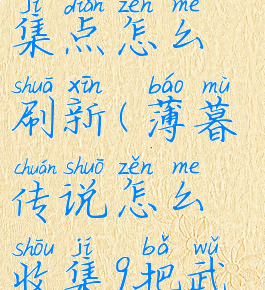 jí diǎn zěn me
集点怎么
shuā xīn báo mù
刷新(薄暮
chuán shuō zěn me
传说怎么
shōu jí 9 bǎ wǔ
收集9把武